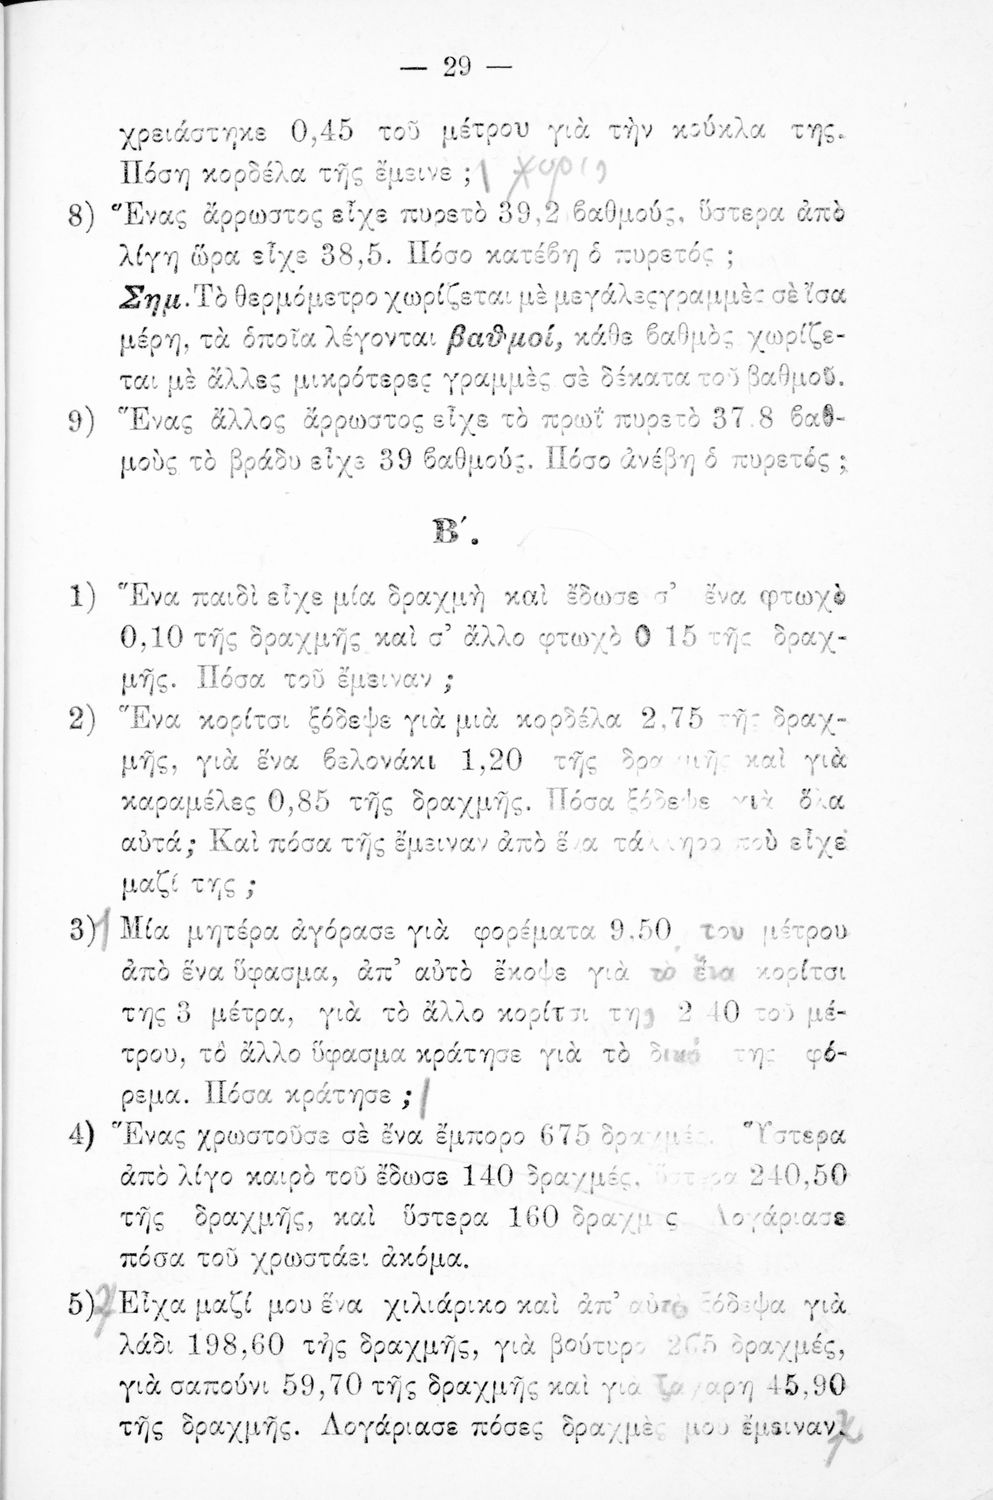 — 29 —
χρειάστηκε 0,45 τοῦ μέτρου γιὰ τὴν κούκλα της.
Πόση κορδέλα τῆς ἔμεινε ;
8) Ἕνας ἄρρωστος εἶχε πυρετὸ 39,2 βαθμούς, ὕστερα ἀπὸ
λίγη ὥρα εἶχε 38,5. Πόσο κατέβη ὁ πυρετός ;
Σημ. Τὸ θερμόμετρο χωρίζεται μὲ μεγάλες γραμμὲς σὲ ἴσα
μέρη, τὰ ὁποῖα λέγονται βαθμοί, κάθε βαθμὸς χωρίζε-
ται μὲ ἄλλες μικρότερες γραμμὲς σὲ δέκατα τοῦ βαθμοῦ.
9) Ἕνας ἄλλος ἄρρωστος εἶχε τὸ πρωῒ πυρετὸ 37.8 βαθ-
μοὺς τὸ βράδυ εἶχε 39 βαθμούς. Πόσο ἀνέβη ὁ πυρετός ;
Β΄.
1) Ἕνα παιδὶ εἶχε μία δραχμὴ καὶ ἔδωσε σ' ἕνα φτωχὸ
0,10 τῆς δραχμῆς καὶ σ' ἄλλο φτωχὸ 0 15 τῆς δραχ-
μῆς. Πόσα τοῦ ἔμειναν ;
2) Ἕνα κορίτσι ξόδεψε γιὰ μιὰ κορδέλα 2,75 τῆς δραχ-
μῆς, γιὰ ἕνα βελονάκι 1,20 τῆς δραχμῆς καὶ γιὰ
καραμέλες 0,85 τῆς δραχμῆς. Πόσα ξόδεψε γιὰ ὅλα
αὐτά; Καὶ πόσα τῆς ἔμειναν ἀπὸ ἕνα τάλληρο ποὺ εἶχε
μαζί της ;
3) Μία μητέρα ἀγόρασε γιὰ φορέματα 9.50 του μέτρου
ἀπὸ ἕνα ὕφασμα, ἀπ' αὐτὸ ἔκοψε γιὰ τὸ ἕνα κορίτσι
της 3 μέτρα, γιὰ τὸ ἄλλο κορίτσι της 2 40 τοῦ μέ-
τρου, τὸ ἄλλο ὕφασμα κράτησε γιὰ τὸ δικό της φό-
ρεμα. Πόσα κράτησε ;
4) Ἕνας χρωστοῦσε σὲ ἕνα ἔμπορο 675 δραχμές. Ὕστερα
ἀπὸ λίγο καιρὸ τοῦ ἔδωσε 140 δραχμές, ὕστερα 240,50
τῆς δραχμῆς, καὶ ὕστερα 160 δραχμές Λογάριασε
πόσα τοῦ χρωστάει ἀκόμα.
5) Εἶχα μαζί μου ἕνα χιλιάρικο καὶ ἀπ' αὐτὸ ξόδεψα γιὰ
λάδι 198,60 τῆς δραχμῆς, γιὰ βούτυρο 265 δραχμές,
γιὰ σαπούνι 59,70 τῆς δραχμῆς καὶ γιὰ ζάχαρη 45,90
τῆς δραχμῆς. Λογάριασε πόσες δραχμὲς μου ἔμειναν.